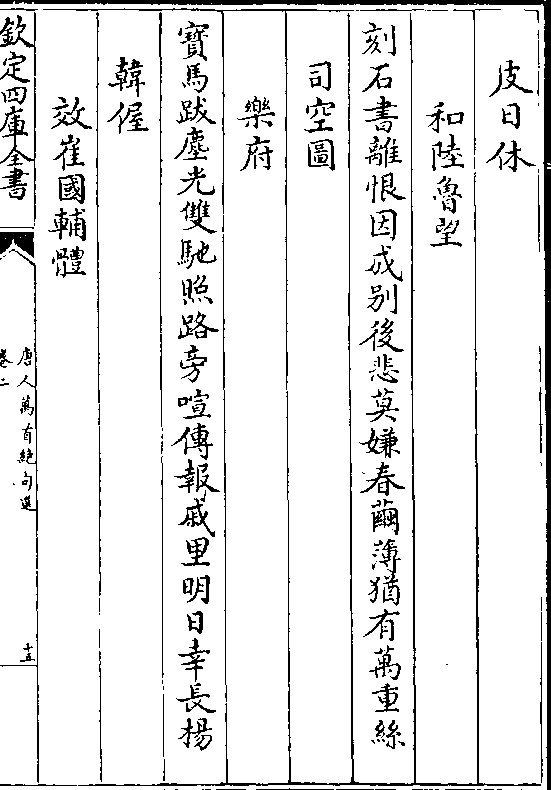 皮日休
和陸魯望
刻石書離恨因成别後悲莫嫌春繭薄猶有萬重絲
司空圖
樂府
寶馬跋塵光雙馳照路旁喧傳報戚里明日幸長楊
韓偓
效崔國輔體
欽定四庫全書
唐人萬首絶句選
卷二
十五